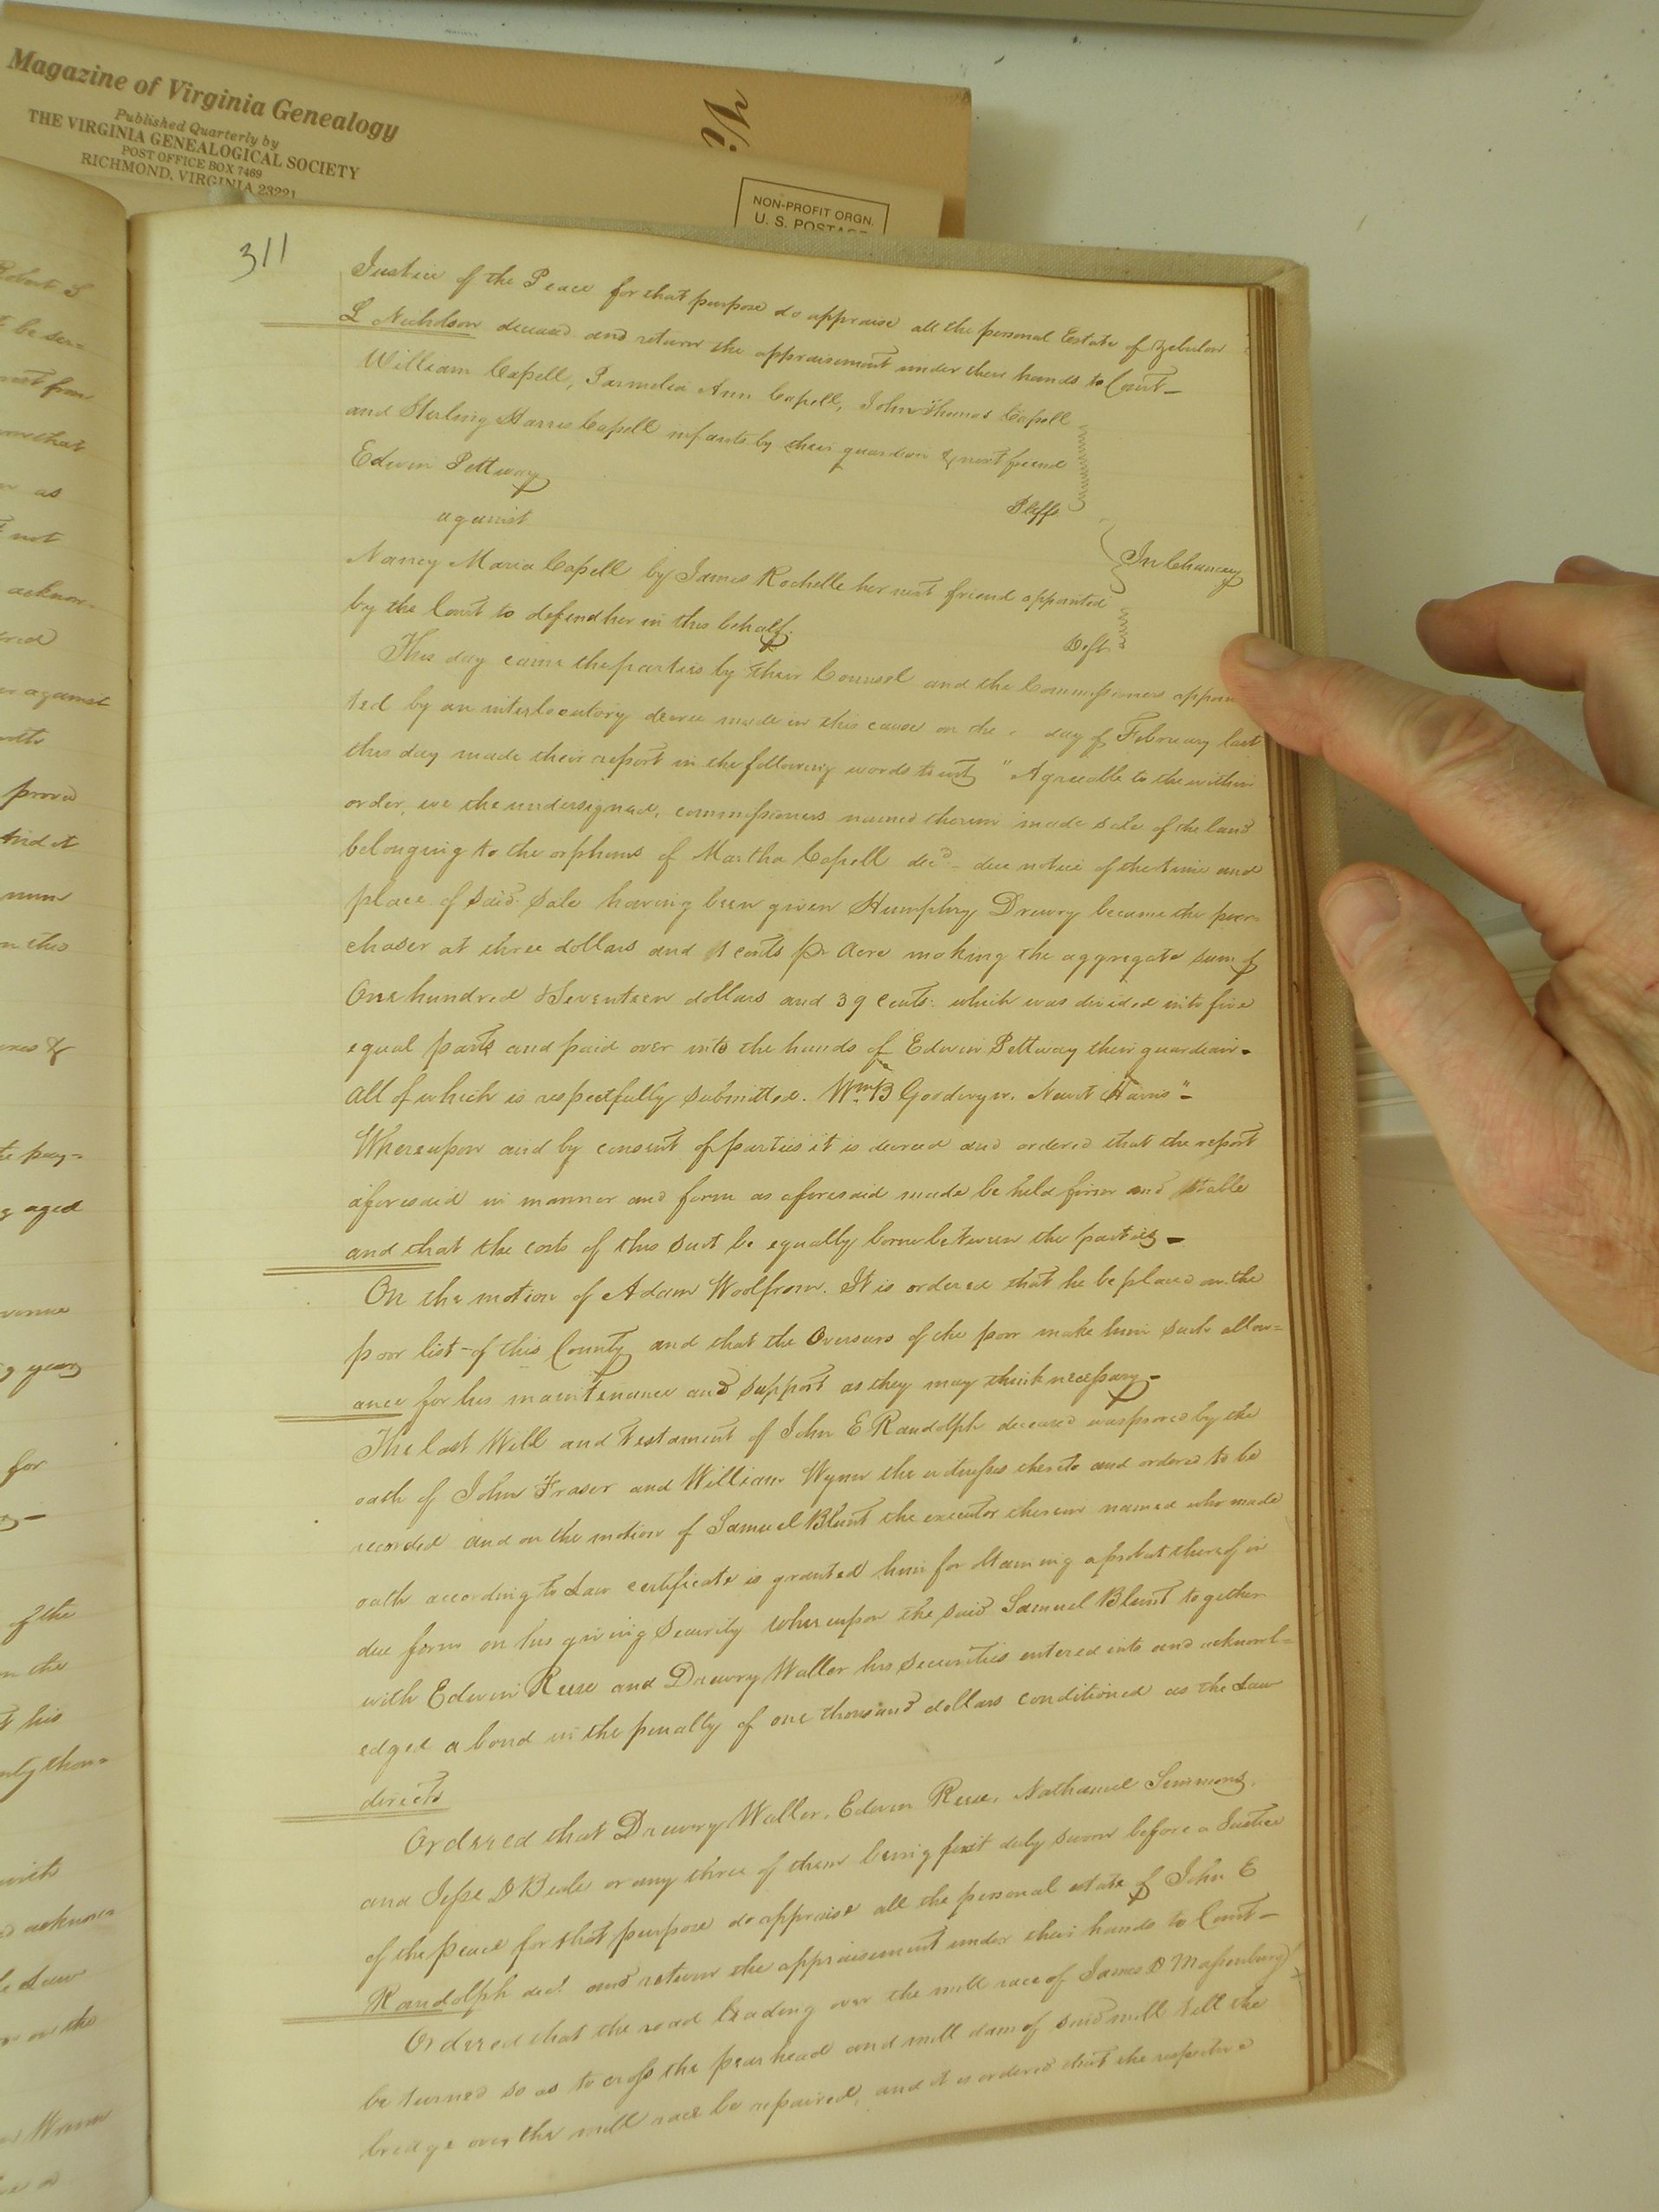 Magazine of Virginia Genealogy
Published Quarterly by
THE VIRGINIA GENEALOGICAL SOCIETY
POST OFFICE BOX 7469
RICHMOND, VIRGINIA 23221
NON-PROFIT ORGN.
U. S. POSTAGE
311
Justice of the Peace for that purpose do appraise all the personal Estate of Zebulon
L Nicholson deceased and return the appraisement under their hands to Court
William Capell, Parmelia Ann Capell, John Thomas Capell
and Sterling Harris Capell infants by their guardian & next friend
Edwin Pettway
Plffs
against
In Chancery
Nancy Maria Capell by James Rochelle her next friend appointed
by the Court to defend her in this behalf.
Deft
This day came the parties by their Counsel and the Commissioners appoin
ted by an interlocutory decree made in this cause on the day of February last
this day made their report in the following words to wit, "Agreeable to the within
order, we the undersigned, commissioners named therein made sale of the land
belonging to the orphans of Martha Capell decd - due notice of the time and
place of said sale having been given Humphrey Drewry became the pur=
chaser at three dollars and 1 cents pr Acre making the aggregate sum of
One hundred & Seventeen dollars and 39 Cents: which was divided into five
equal parts and paid over into the hands of Edwin Pettway their guardian -
All of which is respectfully submitted. Wm. B Goodwyn. Newit Harris" -
Whereupon and by consent of parties it is decreed and ordered that the report
aforesaid in manner and form as aforesaid made be held firm and stable
and that the costs of this suit be equally borne between the parties -
On the motion of Adam Woolfrom. It is ordered that he be placed on the
poor list - of this County and that the Overseers of the poor make him such allow=
ance for his maintenance and support as they may think necessary -
The last Will and Testament of John E Randolph deceased was proved by the
oath of John Fraser and William Wynn the witnesses thereto and ordered to be
recorded and on the motion of Samuel Blunt the executor therein named who made
oath according to Law certificate is granted him for obtaining a probat thereof in
due form on his giving Security Whereupon the said Samuel Blunt together
with Edwin Reese and Drewry Waller his Securities entered into and acknowl=
edged a bond in the penalty of one thousand dollars conditioned as the Law
directs
Ordered that Drewry Waller, Edwin Reese, Nathaniel Simmons,
and Jesse D Beale or any three of them being first duly sworn before a Justice
of the peace for that purpose do appraise all the personal estate of John E
Randolph decd. and return the appraisement under their hands to Court -
Ordered that the road leading over the mill race of James D Massenburg
be turned so as to cross the pear head and mill dam of said mill till the
bridge over the mill race be repaired, and it is ordered that the respective